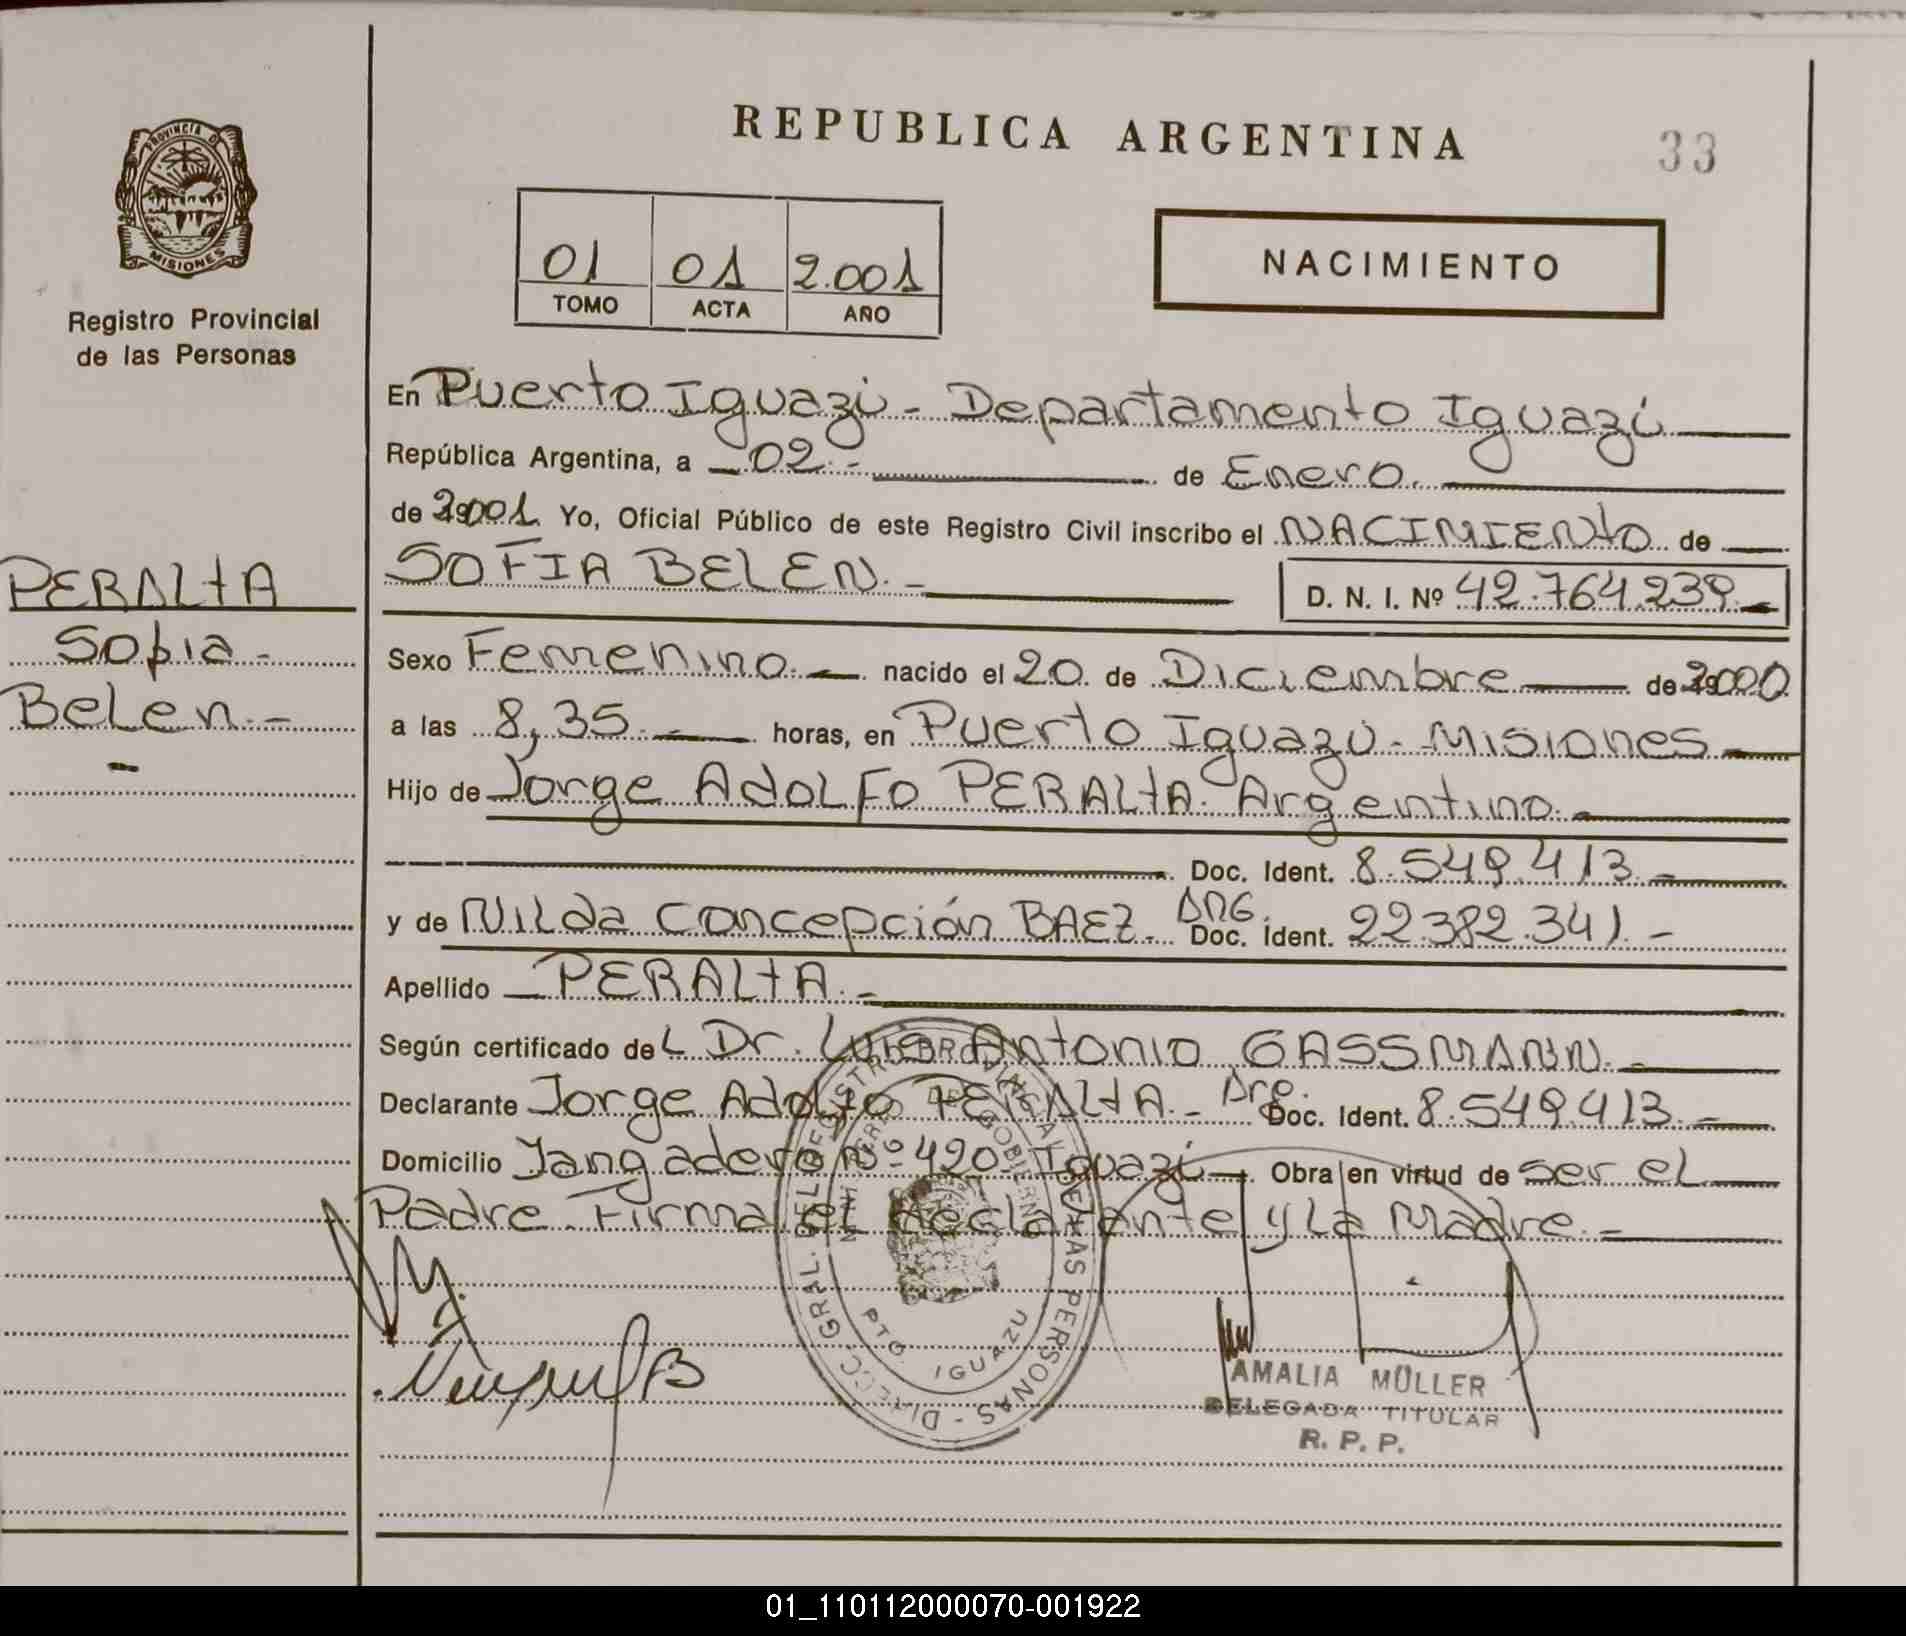 REPUBLICA ARGENTINA
33
PROVINCIA DE
MISIONES
Registro Provincial
de las Personas
01 01 2.001
TOMO ACTA AÑO
NACIMIENTO
En Puerto Iguazú - Departamento Iguazú
República Argentina, a 02.- de Enero.
de 2.001 Yo, Oficial Público de este Registro Civil inscribo el NACIMIENTO de
SOFIA BELEN.- D. N. I. Nº 42.764.239
PERALTA
Sofia-
Belen.-
Sexo Femenino. nacido el 20 de Diciembre de 2000
a las 8,35. horas, en Puerto Iguazú - Misiones
Hijo de Jorge Adolfo PERALTA. Argentino.
Doc. Ident. 8.549.413.-
y de Nilda Concepción BAEZ. ARG. Doc. Ident. 22.382.341.-
Apellido PERALTA.-
Según certificado del Dr. Luis Antonio GASSMANN.-
Declarante Jorge Adolfo PERALTA.- Arg. Doc. Ident. 8.549.413.-
Domicilio Jangadero Nº 490 Iguazú. Obra en virtud de ser el
Padre. Firma el declarante y la Madre.-
DIRECC. GRAL. DEL REGISTRO PROVINCIAL DE LAS PERSONAS -
PTO. IGUAZU
AMALIA MÜLLER
DELEGADA TITULAR
R. P. P.
01_110112000070-001922